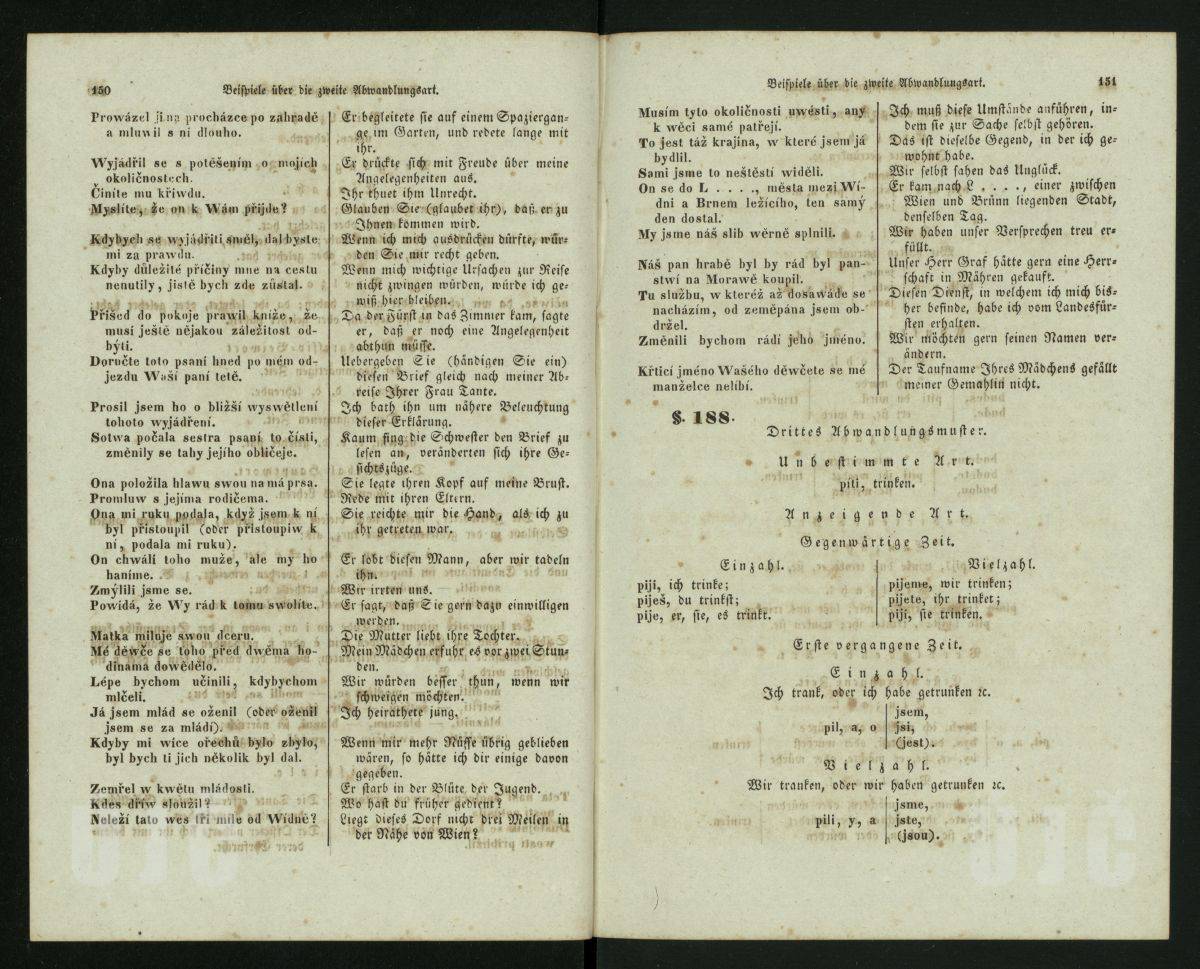 150
Beispiele über die zweite Abwandlungsart.
Prowázel ji na procházce po zahradě
a mluwil s ní dlouho.
Wyjádřil se s potěšením o mojích
okoličnostech.
Činíte mu křiwdu.
Myslíte, že on k Wám přijde?
Kdybych se wyjádřiti směl, dal byste
mi za prawdu.
Kdyby důležité příčiny mne na cestu
nenutily, jistě bych zde zůstal.
Přišed do pokoje prawil kníže, že
musí ještě nějakou záležitost od-
býti.
Doručte toto psaní hned po mém od-
jezdu Waší paní tetě.
Prosil jsem ho o bližší wyswětlení
tohoto wyjádření.
Sotwa počala sestra psaní to čísti,
změnily se tahy jejího obličeje.
Ona položila hlawu swou na má prsa.
Promluw s jejíma rodičema.
Ona mi ruku podala, když jsem k ní
byl přistoupil (oder přistoupiw k
ní, podala mi ruku).
On chwálí toho muže, ale my ho
haníme.
Zmýlili jsme se.
Powídá, že Wy rád k tomu swolíte.
Matka miluje swou dceru.
Mé děwče se toho před dwěma ho-
dinama dowědělo.
Lépe bychom učinili, kdybychom
mlčeli.
Já jsem mlád se oženil (oder oženil
jsem se za mládí).
Kdyby mi wíce ořechů bylo zbylo,
byl bych ti jich několik byl dal.
Zemřel w kwětu mládosti.
Kdes dříw sloužil?
Neleží tato wes tři míle od Wídně?
Er begleitete sie auf einem Spaziergan-
ge im Garten, und redete lange mit
ihr.
Er drückte sich mit Freude über meine
Angelegenheiten aus.
Ihr thuet ihm Unrecht.
Glauben Sie (glaubet ihr), daß er zu
Ihnen kommen wird.
Wenn ich mich ausdrücken dürfte, wür-
den Sie mir recht geben.
Wenn mich wichtige Ursachen zur Reise
nicht zwingen würden, würde ich ge-
wiß hier bleiben.
Da der Fürst in das Zimmer kam, sagte
er, daß er noch eine Angelegenheit
abthun müsse.
Uebergeben Sie (händigen Sie ein)
diesen Brief gleich nach meiner Ab-
reise Ihrer Frau Tante.
Ich bath ihn um nähere Beleuchtung
dieser Erklärung.
Kaum fing die Schwester den Brief zu
lesen an, veränderten sich ihre Ge-
sichtszüge.
Sie legte ihren Kopf auf meine Brust.
Rede mit ihren Eltern.
Sie reichte mir die Hand, als ich zu
ihr getreten war.
Er lobt diesen Mann, aber wir tadeln
ihn.
Wir irrten uns.
Er sagt, daß Sie gern dazu einwilligen
werden.
Die Mutter liebt ihre Tochter.
Mein Mädchen erfuhr es vor zwei Stun-
den.
Wir würden besser thun, wenn wir
schweigen möchten.
Ich heirathete jung.
Wenn mir mehr Nüsse übrig geblieben
wären, so hätte ich dir einige davon
gegeben.
Er starb in der Blüte der Jugend.
Wo hast du früher gedient?
Liegt dieses Dorf nicht drei Meilen in
der Nähe von Wien?
Beispiele über die zweite Abwandlungsart.
151
Musím tyto okoličnosti uwésti, any
k wěci samé patřejí.
To jest táž krajina, w které jsem já
bydlil.
Sami jsme to neštěstí widěli.
On se do L . . . ., města mezi Wí-
dni a Brnem ležícího, ten samý
den dostal.
My jsme náš slib wěrně splnili.
Náš pan hrabě byl by rád byl pan-
stwí na Morawě koupil.
Tu službu, w kteréž až dosawáde se
nacházím, od zeměpána jsem ob-
držel.
Změnili bychom rádi jeho jméno.
Křticí jméno Wašého děwčete se mé
manželce nelíbí.
Ich muß diese Umstände anführen, in-
dem sie zur Sache selbst gehören.
Das ist dieselbe Gegend, in der ich ge-
wohnt habe.
Wir selbst sahen das Unglück.
Er kam nach L . . . ., einer zwischen
Wien und Brünn liegenden Stadt,
denselben Tag.
Wir haben unser Versprechen treu er-
füllt.
Unser Herr Graf hätte gern eine Herr-
schaft in Mähren gekauft.
Diesen Dienst, in welchem ich mich bis-
her befinde, habe ich vom Landesfür-
sten erhalten.
Wir möchten gern seinen Namen ver-
ändern.
Der Taufname Ihres Mädchens gefällt
meiner Gemahlin nicht.
§. 188.
Drittes Abwandlungsmuster.
Unbestimmte Art.
píti, trinken.
Anzeigende Art.
Gegenwärtige Zeit.
Einzahl.
piji, ich trinke;
piješ, du trinkst;
pije, er, sie, es trinkt.
Vielzahl.
pijeme, wir trinken;
pijete, ihr trinket;
pijí, sie trinken.
Erste vergangene Zeit.
Einzahl.
Ich trank, oder ich habe getrunken ꝛc.
jsem,
pil, a, o jsi,
(jest).
Vielzahl.
Wir tranken, oder wir haben getrunken ꝛc.
jsme,
pili, y, a jste,
(jsou).